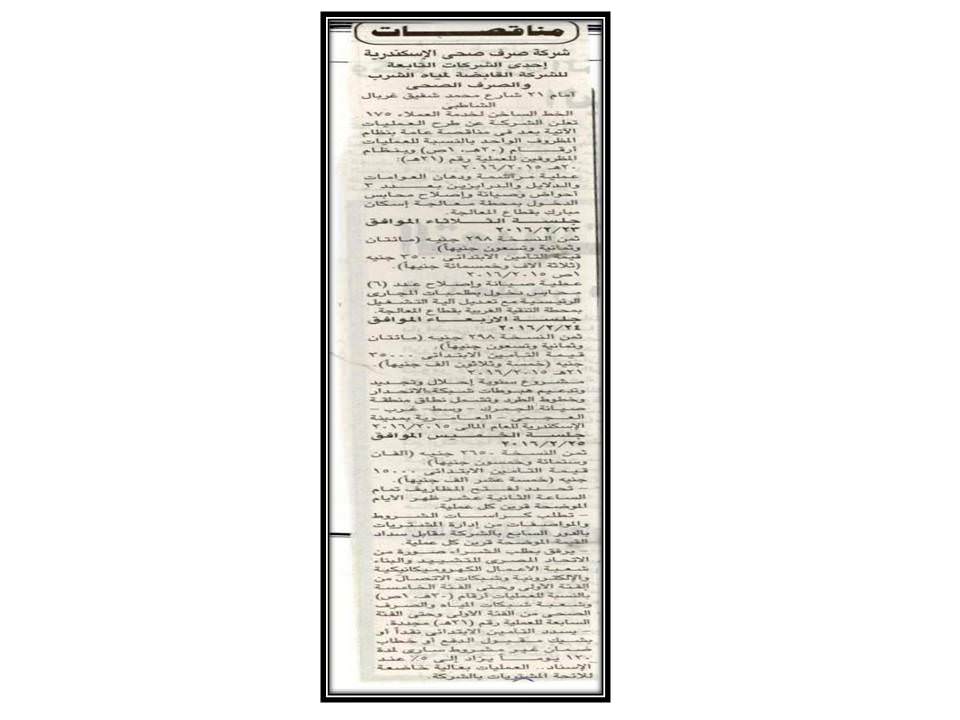 مناقصـــات
شركة صرف صحى الإسكندرية
إحدى الشركات التابعة
للشركة القابضة لمياه الشرب
والصرف الصحى
أمام ٢١ شارع محمد شفيق غربال
الشاطبى
الخط الساخن لخدمة العملاء ١٧٥
تعلن الشركة عن طرح العمليات
الآتية بعد فى مناقصة عامة بنظام
المظروف الواحد بالنسبة للعمليات
أرقـــام (٢٠هـ، ١ص) وبنظـام
المظروفين للعملية رقم (٢١هـ):
٢٠هـ ٢٠١٦/٢٠١٥
عملية مرأشمة ودهان العوامات
والدلايل والدرابزين بعـدد ٣
أحواض وصيانة وإصلاح محابس
الدخول بمحطة معـالجة إسكان
مبارك بقطاع المعالجة.
جلســة الثــلاثاء الموافق
٢٠١٦/٢/٢٣
ثمن النسخة ٢٩٨ جنيه (مائتان
وثمانية وتسعون جنيهاً)
قيمة التأمين الابتدائى ٣٥٠٠ جنيه
(ثلاثة آلاف وخمسمائة جنيهاً).
١ص ٢٠١٦/٢٠١٥
عملية صيانة وإصلاح عدد (٦)
محابس دخول بطلمبات المجارى
الرئيسية مع تعديل آلية التشغيل
بمحطة التنقية الغربية بقطاع المعالجة.
جلســة الأربعــاء الموافق
٢٠١٦/٢/٢٤
ثمن النسخة ٢٩٨ جنيه (مائتان
وثمانية وتسعون جنيهاً).
قيمة التأمين الابتدائى ٣٥٠٠٠
جنيه (خمسة وثلاثون ألف جنيهاً).
٢١هـ ٢٠١٦/٢٠١٥
مشروع سنوية إحلال وتجديد
وتدعيم هبوطات شبكة الانحدار
وخطوط الطرد وتشمل نطاق منطقة
صيانة الجمرك – وسط– غرب –
العجمى – العامرية بمدينة
الإسكندرية للعام المالى ٢٠١٦/٢٠١٥
جلسة الخــميس الموافق
٢٠١٦/٢/٢٥
ثمن النسخة ٢٦٥٠ جنيه (ألفان
وستمائة وخمسون جنيهاً).
قيمة التأمين الابتدائى ١٥٠٠٠
جنيه (خمسة عشر ألف جنيهاً).
– تحدد لفتح المظاريف تمام
الساعة الثانية عشر ظهر الأيام
الموضحة قرين كل عملية.
– تطلب كراسات الشروط
والمواصفات من إدارة المشتريات
بالدور السابع بالشركة مقابل سداد
القيمة الموضحة قرين كل عملية.
– يرفق بطلب الشراء صورة من
الاتحاد المصرى للتشييد والبناء
شعبة الأعمال الكهروميكانيكية
والإلكترونية وشبكات الاتصال من
الفئة الأولى وحتى الفئة الخامسة
بالنسبة للعمليات أرقام (٢٠هـ، ١ص)
وشعبة شبكات المياه والصرف
الصحى من الفئة الأولى وحتى الفئة
السابعة للعملية رقم (٢١هـ) مجددة.
– يسدد التأمين الابتدائى نقداً أو
بشيك مقبول الدفع أو خطاب
ضمان غير مشروط سارى لمدة
١٢٠ يوماً يزاد إلى ٥٪ عند
الإسناد.. العمليات بعالية خاضعة
للائحة المشتريات بالشركة.